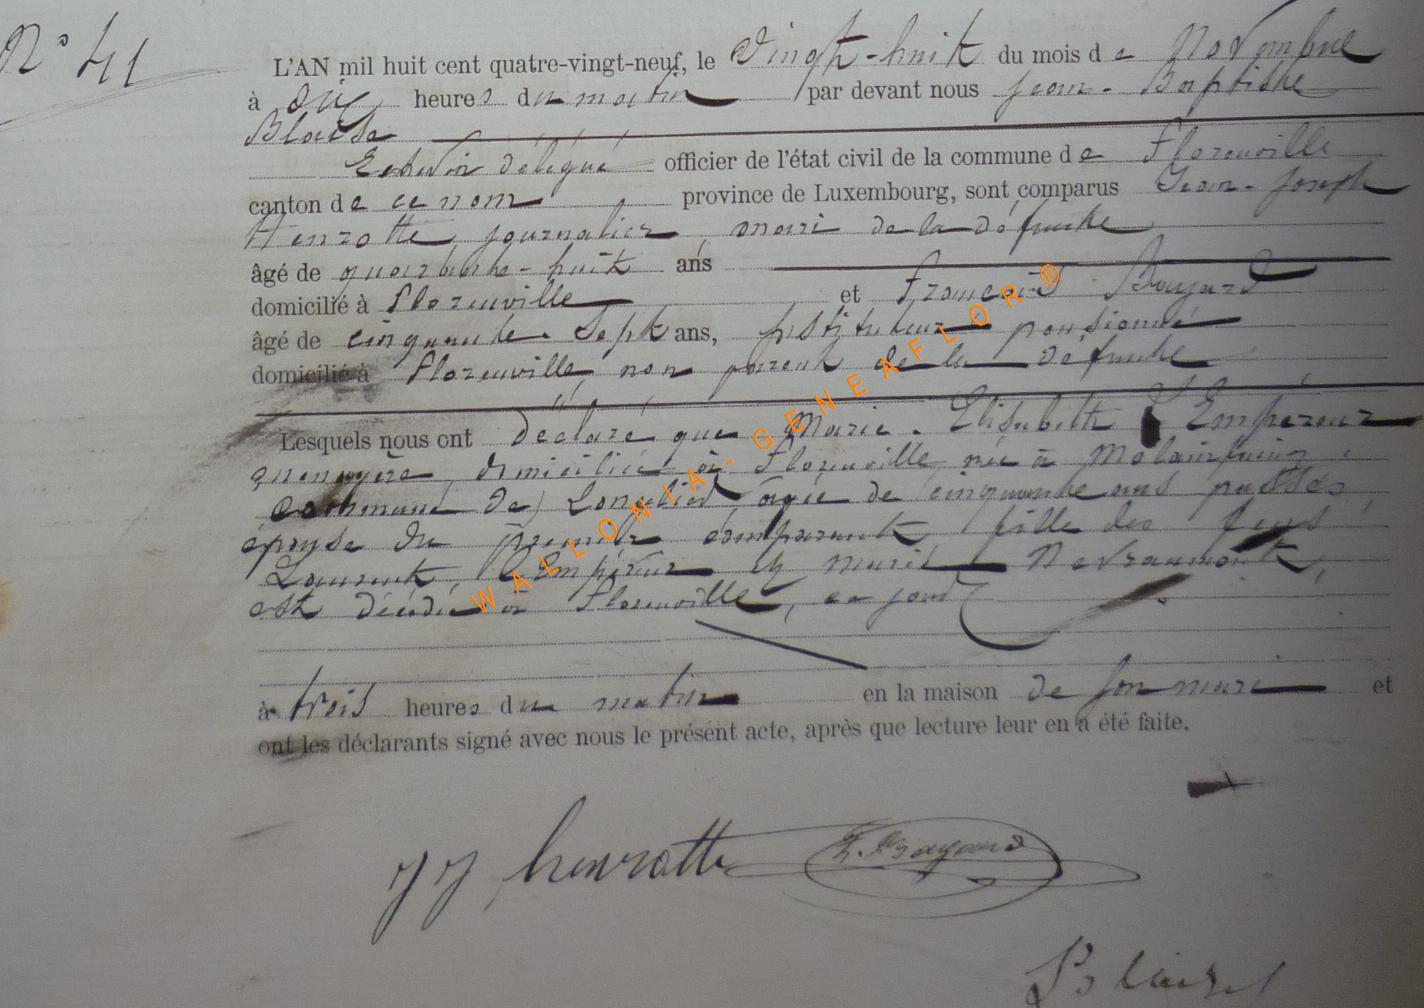 N° 41
L'AN mil huit cent quatre-vingt-neuf, le Vingt-huit du mois de Novembre
à dix heures du matin par devant nous Jean-Baptiste
Blaise
Echevin délégué officier de l'état civil de la commune de Florenville
canton de ce nom province de Luxembourg, sont comparus Jean-Joseph
Henrotte, journalier, mari de la défunte
âgé de quarante-huit ans
domicilié à Florenville et François Bayard
âgé de cinquante-sept ans, Instituteur pensionné
domicilié à Florenville, non parent de la défunte
Lesquels nous ont déclaré que Marie-Elisabeth Lempereur
ménagère, domiciliée à Florenville, née à
commune de Longlier, âgée de cinquante ans passés
épouse du premier comparant, fille des feus
Laurent Lempereur et Marie Nevraumont,
est décédée à Florenville, ce jour
à trois heures du matin en la maison de son mari et
ont les déclarants signé avec nous le présent acte, après que lecture leur en a été faite.
JJ henrotte F. Bayard
Blaise
WALLONIA-GENEAFLOR®